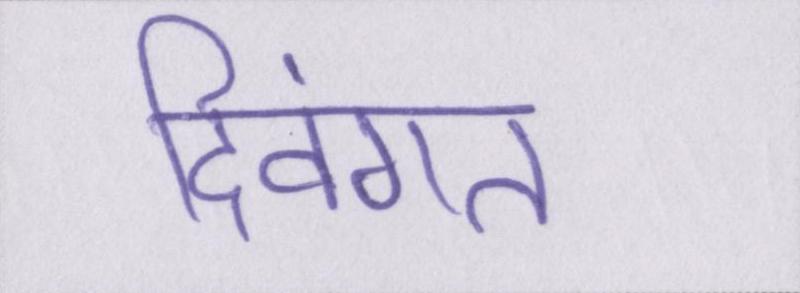 दिवंगत